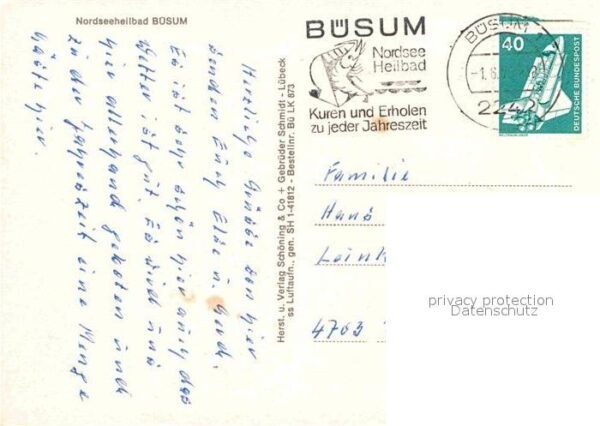 Nordseeheilbad BÜSUM
Herzliche Grüße von hier
senden Euch Else u. Gerh.
Es ist sehr schön hier auch das
Wetter ist gut. Es wird uns
hier allerhand geboten und
zu der Jahreszeit eine Menge
Gäste hier.
Herst. u. Verlag Schöning & Co + Gebrüder Schmidt - Lübeck
ss Luftaufn., gen. SH 1-41812 - Bestellnr. Bü LK 873
BÜSUM
Nordsee
Heilbad
Kuren und Erholen
zu jeder Jahreszeit
BÜSUM 1
-1.6.
224
40
DEUTSCHE BUNDESPOST
Familie
Hans
4703
privacy protection
Datenschutz